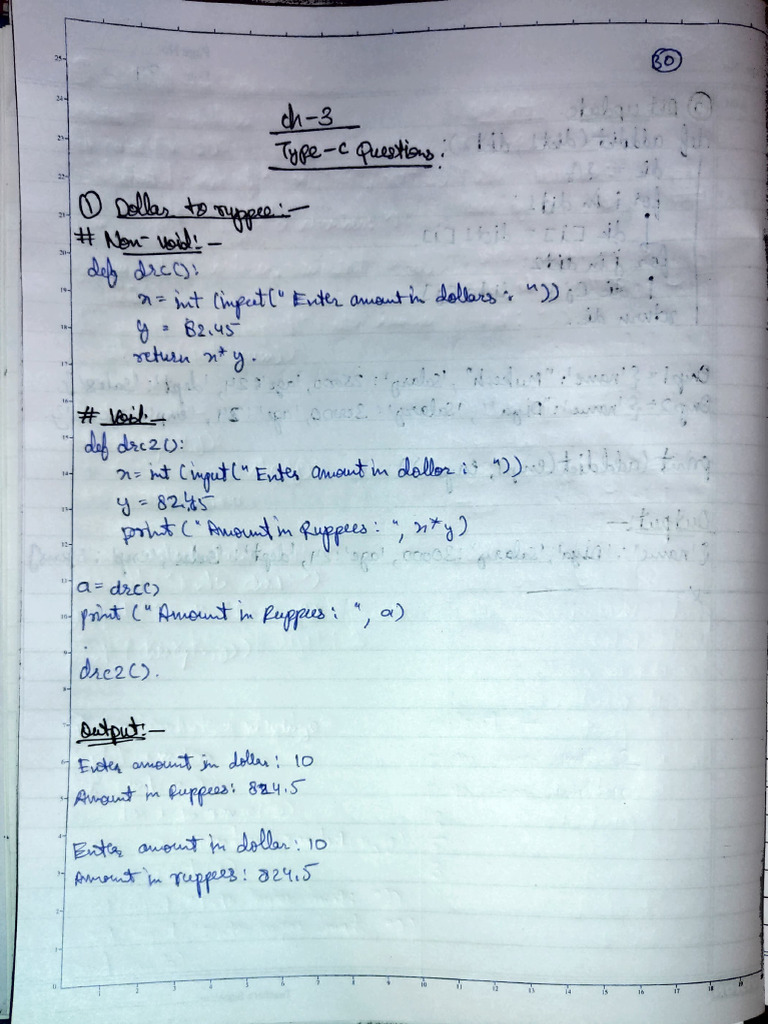 30
Ch-3
Type-C Questions:
① Dollar to ruppee:-
# Non-void:-
def drc():
x = int (input(" Enter amount in dollars : "))
y = 82.45
return x*y.
# Void:-
def drc2():
x = int (input(" Enter amount in dollar : "))
y = 82.45
print (" Amount in Ruppees: ", x*y)
a = drc()
print (" Amount in Ruppees: ", a)
drc2().
Output:-
Enter amount in dollar: 10
Amount in Ruppees: 824.5
Enter amount in dollar: 10
Amount in ruppees: 824.5